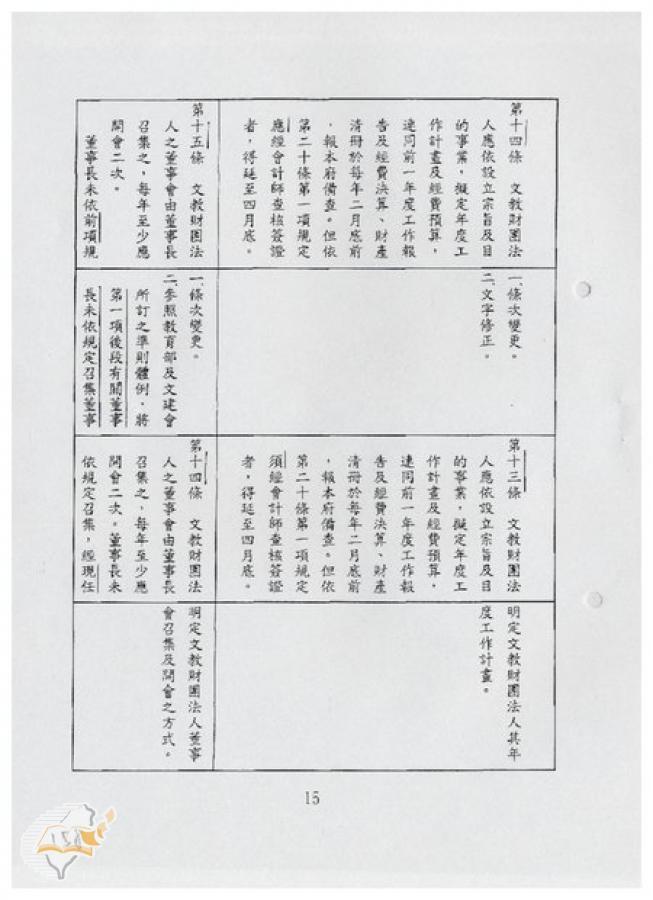 第十四條　文教財團法
人應依設立宗旨及目
的事業，擬定年度工
作計畫及經費預算，
連同前一年度工作報
告及經費決算、財產
清冊於每年二月底前
，報本府備查。但依
第二十條第一項規定
應經會計師查核簽證
者，得延至四月底。
一、條次變更。
二、文字修正。
第十三條　文教財團法
人應依設立宗旨及目
的事業，擬定年度工
作計畫及經費預算，
連同前一年度工作報
告及經費決算、財產
清冊於每年二月底前
，報本府備查。但依
第二十條第一項規定
須經會計師查核簽證
者，得延至四月底。
明定文教財團法人其年
度工作計畫。
第十五條　文教財團法
人之董事會由董事長
召集之，每年至少應
開會二次。
董事長未依前項規
一、條次變更。
二、參照教育部及文建會
所訂之準則體例，將
第一項後段有關董事
長未依規定召集董事
第十四條　文教財團法
人之董事會由董事長
召集之，每年至少應
開會二次。董事長未
依規定召集，經現任
明定文教財團法人董事
會召集及開會之方式。
15